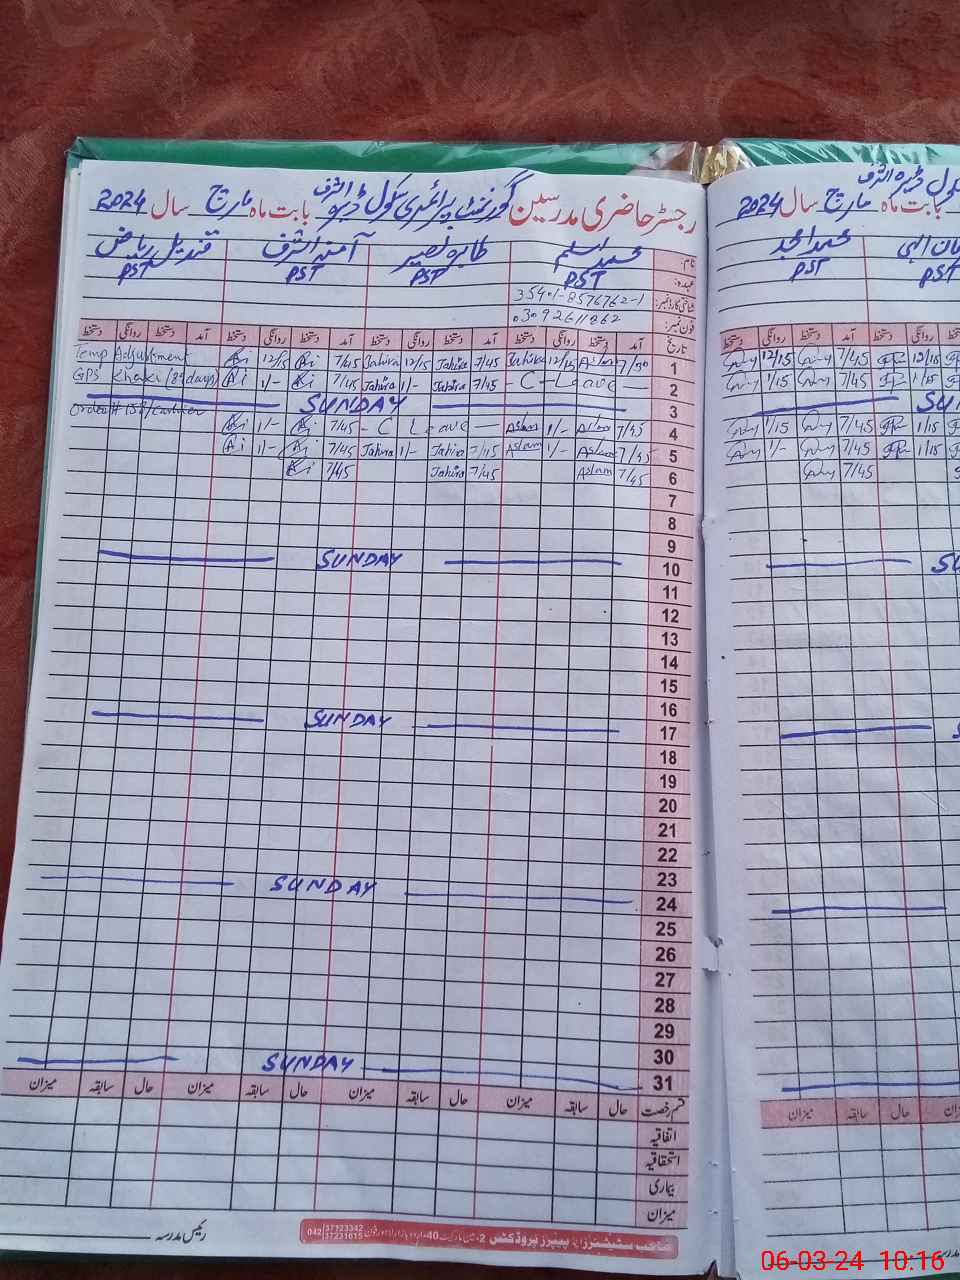 رجسٹر حاضری مدرسین گورنمنٹ پرائمری سکول ڈیرہ اشرف بابت ماہ مارچ سال 2024
نام: محمد اسلم طاہرہ نصیر آمنہ اشرف قندیل ریاض
عہدہ: PST PST PST PST
شناختی کارڈ نمبر: 35401-8576762-1
فون نمبر: 03092611862
تاریخ آمد دستخط روانگی دستخط آمد دستخط روانگی دستخط آمد دستخط روانگی دستخط آمد دستخط روانگی دستخط
Temp Adjustment 12/15 7/45 Tahira 12/15 Tahira 7/45 12/15 Aslam 7/50 1
GPS Khaki (89 days) 1/- 7/45 Tahira 1/- Tahira 7/45 - C - Leave - 2
SUNDAY 3
1/- 7/45 - C Leave - Aslam 1/- Aslam 7/45 4
1/- 7/45 Tahira 1/- Tahira 7/45 Aslam 1/- Aslam 7/45 5
7/45 Tahira 7/45 Aslam 7/45 6
7
8
9
SUNDAY 10
11
12
13
14
15
16
SUNDAY 17
18
19
20
21
22
23
SUNDAY 24
25
26
27
28
29
30
SUNDAY 31
قسم رخصت حال سابقہ میزان حال سابقہ میزان حال سابقہ میزان حال سابقہ میزان
اتفاقیہ
استحقاقیہ
بیماری
میزان
رئیس مدرسہ
صاحب سٹیشنرز اینڈ پیپرز پروڈکٹس
042 37123342
37231615
بابت ماہ مارچ سال 2024
محمد امجد
PST PST
دستخط روانگی دستخط آمد دستخط روانگی
12/15 7/45 12/15
1/15 7/45 1/15
1/15 7/45 1/15
1/- 7/45 1/15
7/45
میزان سابقہ حال
06-03-24 10:16